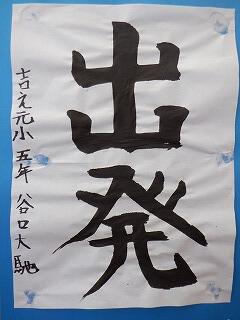 出発
吉え元小 五年 谷口大馳